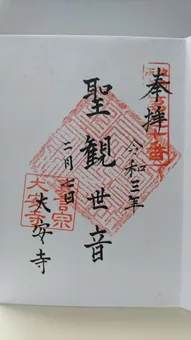 奉拝
令和三年
二月七日
聖観世音
大安寺
真言宗
大安寺